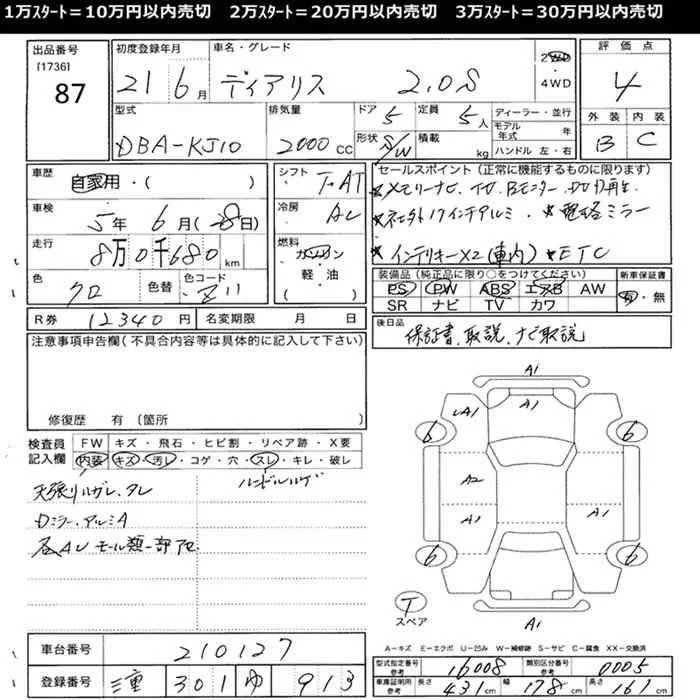 1万ｽﾀｰﾄ＝10万円以内売切　2万ｽﾀｰﾄ＝20万円以内売切　3万ｽﾀｰﾄ＝30万円以内売切
出品番号 初度登録年月 車名・グレード 2WD 評価点
[1736]
87 21 6月 ディアリス 2.0S 4WD 4
型式 排気量 ドア 5 定員 5人 ディーラー・並行 外装 内装
DBA-KJ10 2000 CC 形状 S/W 積載 kg モデル年式 年 B C
ハンドル 左・右
車歴 自家用・( ) シフト
セールスポイント（正常に機能するものに限ります）
★メモリーナビ.TV.Bモニター.DVD再生
車検 5年 6月(28日) 冷房 AC
★社外17インチアルミ ★電格ミラー
走行 8万0千680km 燃料 ガソリン
軽・油
( )
★インテリキーX2(車内) ★ETC
色 クロ 色替 色コード Z11
装備品（純正品に限り○をつけてください） 新車保証書
PS PW ABS エアB AW 有・無
SR ナビ TV カワ
R券 12340円 名変期限 月 日
後日品 保証書.取説.ナビ取説
注意事項申告欄(不具合内容等は具体的に記入して下さい)
修復歴 有〔箇所 〕
検査員記入欄 FW キズ・飛石・ヒビ割・リペア跡・X要
内装 キズ・汚レ・コゲ・穴・スレ・キレ・破レ
天張りハガレ.タレ
Dミラー.アルミA
各AU モール類一部
A1
A1
A1
6 6
A2
A1 A1
6 6
T
スペア
A1
A－キズ E－エクボ U－凹み W－補修跡 S－サビ C－腐食 XX－交換済
車台番号 210127
登録番号 三重 301 ゆ 913
型式指定番号 参考 16008 類別区分番号 参考 0005
車庫証明用 参考 長さ 431cm 幅 178cm 高さ 161cm